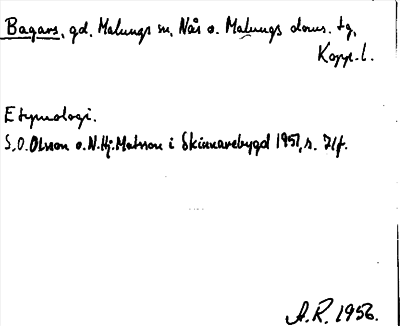 Bagars, gd. Malungs sn, Nås o. Malungs doms. tg,
Kopp. l.
Etymologi.
S.O. Olsson o. N. Hj. Matsson i Skinnarebygd 1951, s. 71f.
A.R. 1956.